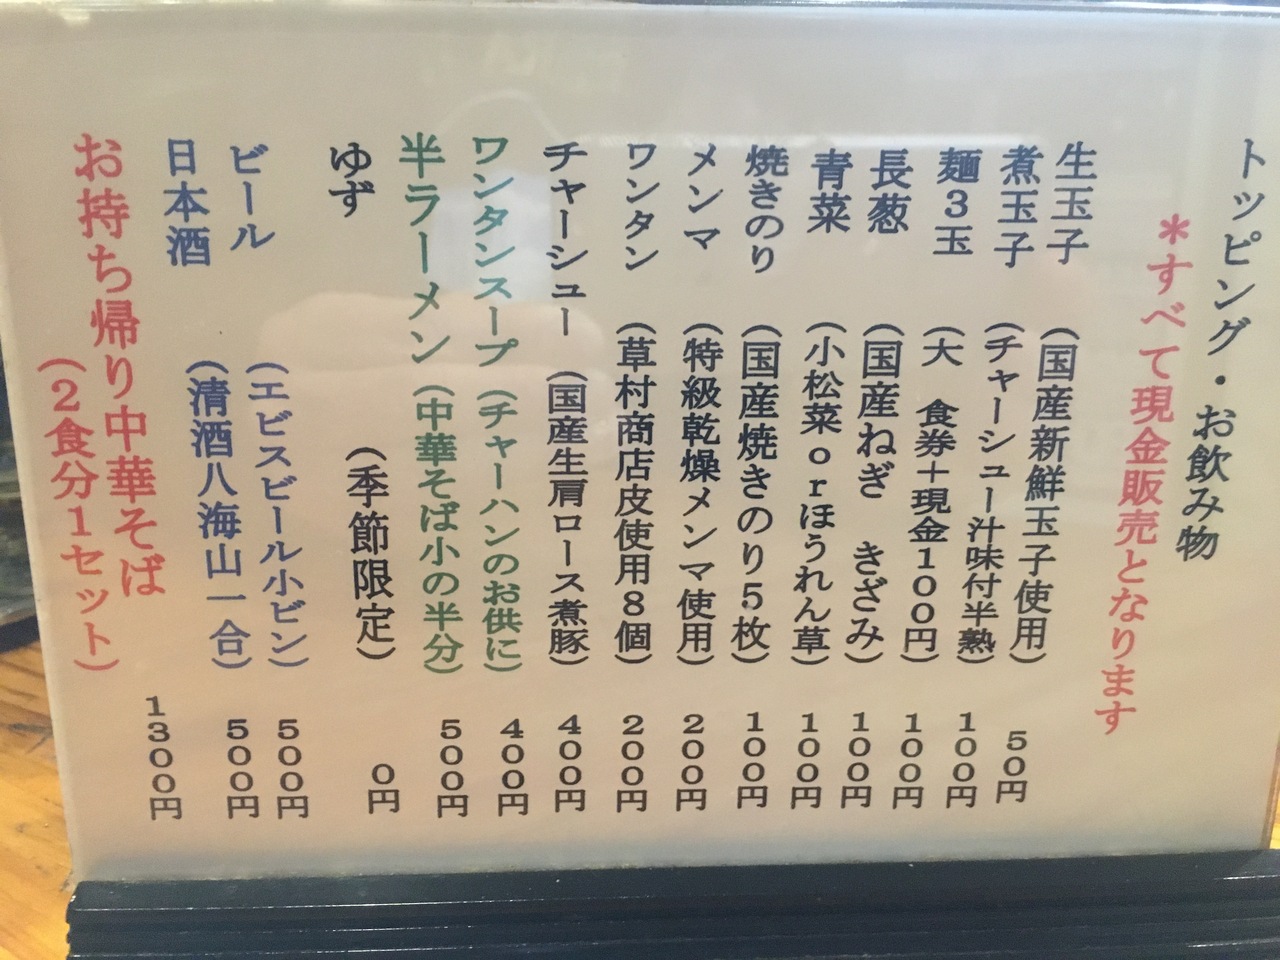 トッピング・お飲み物
＊すべて現金販売となります
生玉子 （国産新鮮玉子使用） 50円
煮玉子 （チャーシュー汁味付半熟） 100円
麺３玉 （大 食券＋現金１００円） 100円
長葱 （国産ねぎ きざみ） 100円
青菜 （小松菜ｏｒほうれん草） 100円
焼きのり （国産焼きのり５枚） 100円
メンマ （特級乾燥メンマ使用） 200円
ワンタン （草村商店皮使用８個） 200円
チャーシュー （国産生肩ロース煮豚） 400円
ワンタンスープ （チャーハンのお供に） 400円
半ラーメン （中華そば小の半分） 500円
ゆず （季節限定） 0円
ビール （エビスビール小ビン） 500円
日本酒 （清酒八海山一合） 500円
お持ち帰り中華そば 1300円
（２食分１セット）